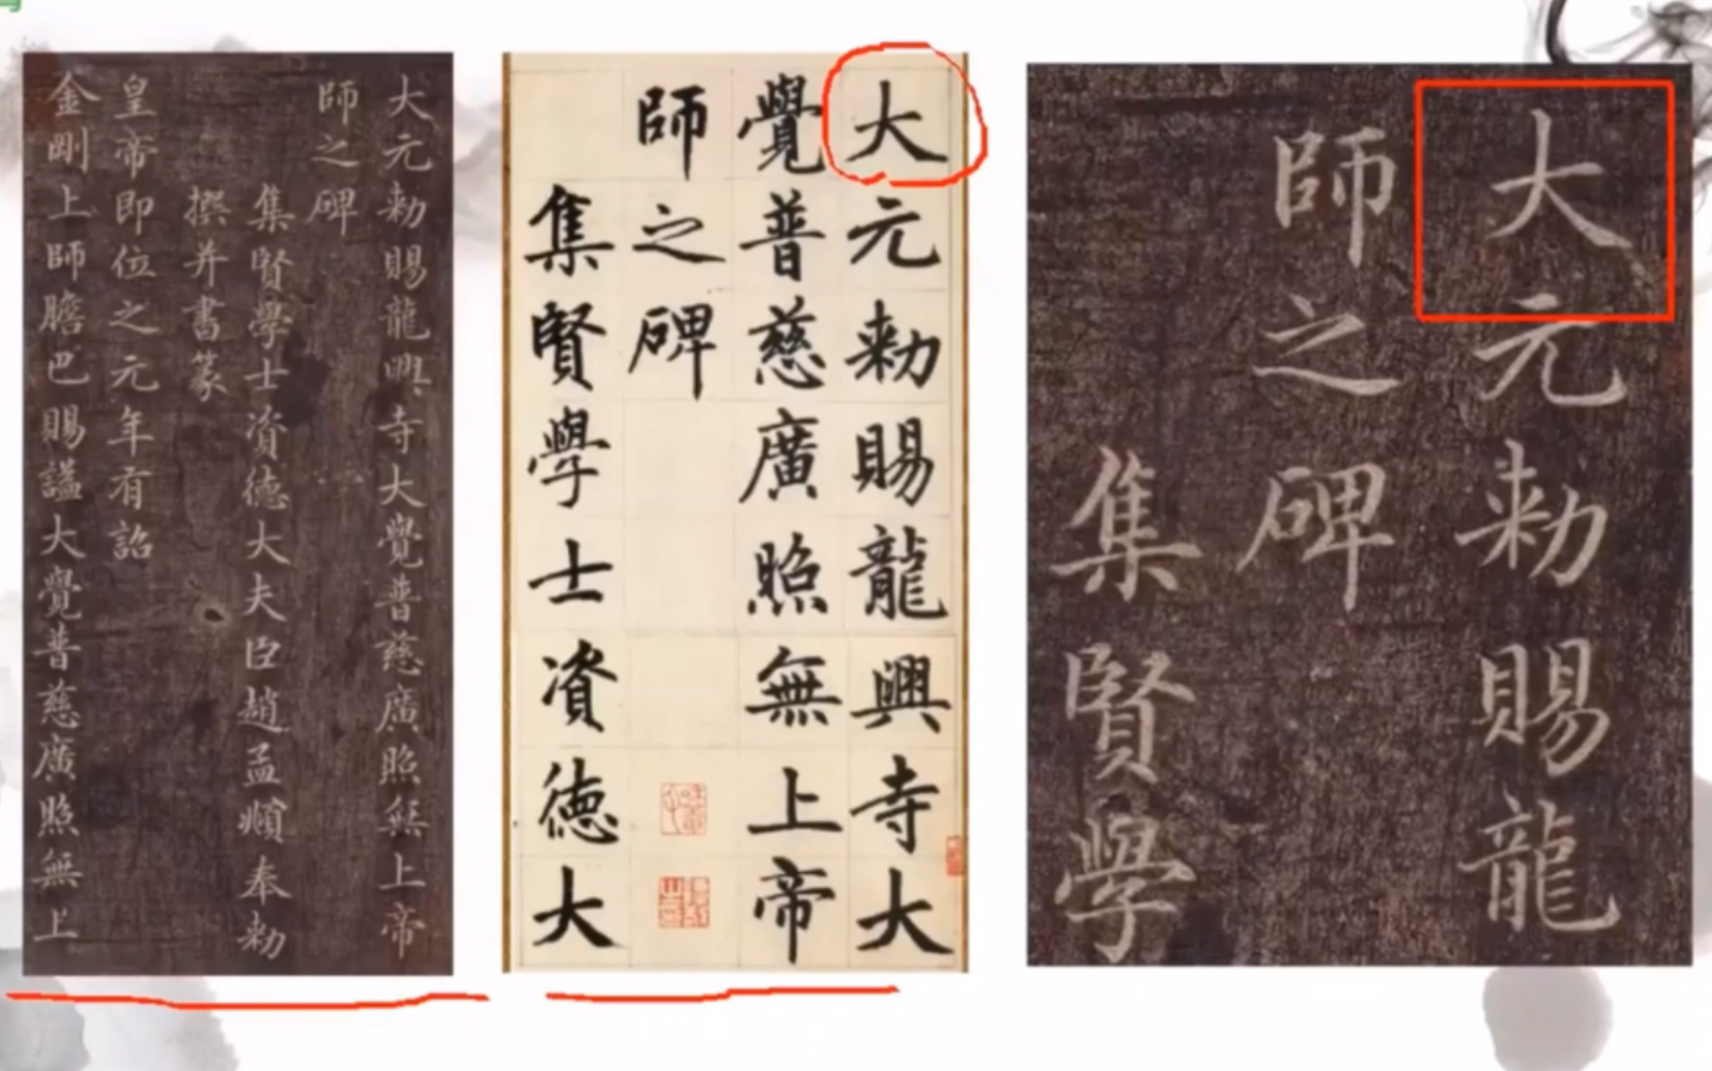 大元勅賜龍興寺大覺普慈廣照無上帝
師之碑
集賢學士資德大夫臣趙孟頫奉勅
撰并書篆
皇帝即位之元年有詔
金剛上師膽巴賜謚大覺普慈廣照無上
大元勅賜龍興寺大
覺普慈廣照無上帝
師之碑
集賢學士資德大
大元勅賜龍
師之碑
集賢學